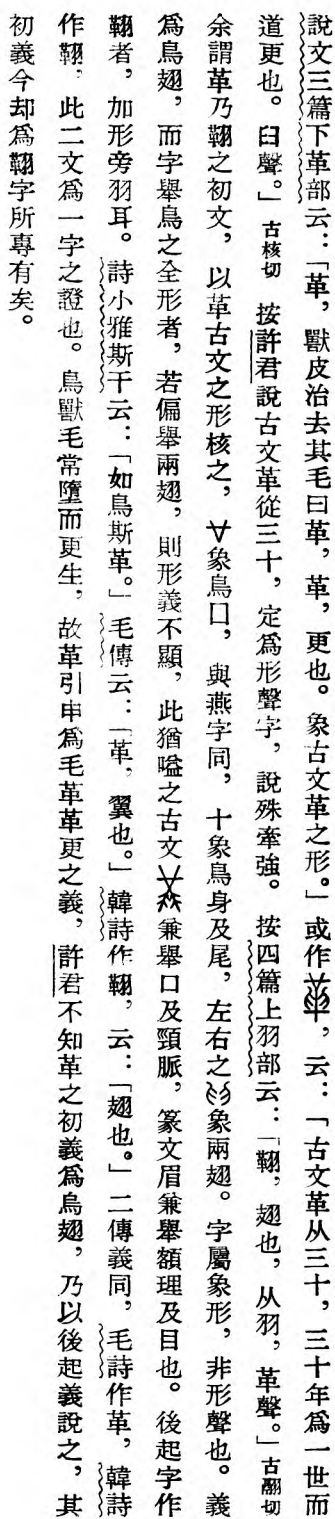 說文三篇下革部云：「革，獸皮治去其毛曰革，革，更也。象古文革之形。」或作，云：「古文革从三十，三十年爲一世而
道更也。𦥑聲。」古核切　按許君說古文革從三十，定爲形聲字，說殊牽強。按四篇上羽部云：「䎗，翅也，从羽，革聲。」古翮切
余謂革乃䎗之初文，以革古文之形核之，廿象鳥口，與燕字同，十象鳥身及尾，左右之象兩翅。字屬象形，非形聲也。義
爲鳥翅，而字舉鳥之全形者，若偏舉兩翅，則形義不顯，此猶嗌之古文兼舉口及頸脈，篆文眉兼舉額理及目也。後起字作
䎗者，加形旁羽耳。詩小雅斯干云：「如鳥斯革。」毛傳云：「革，翼也。」韓詩作䎗，云：「翅也。」二傳義同，毛詩作革，韓詩
作䎗，此二文爲一字之證也。鳥獸毛常墮而更生，故革引申爲毛革革更之義，許君不知革之初義爲鳥翅，乃以後起義說之，其
初義今却爲䎗字所專有矣。